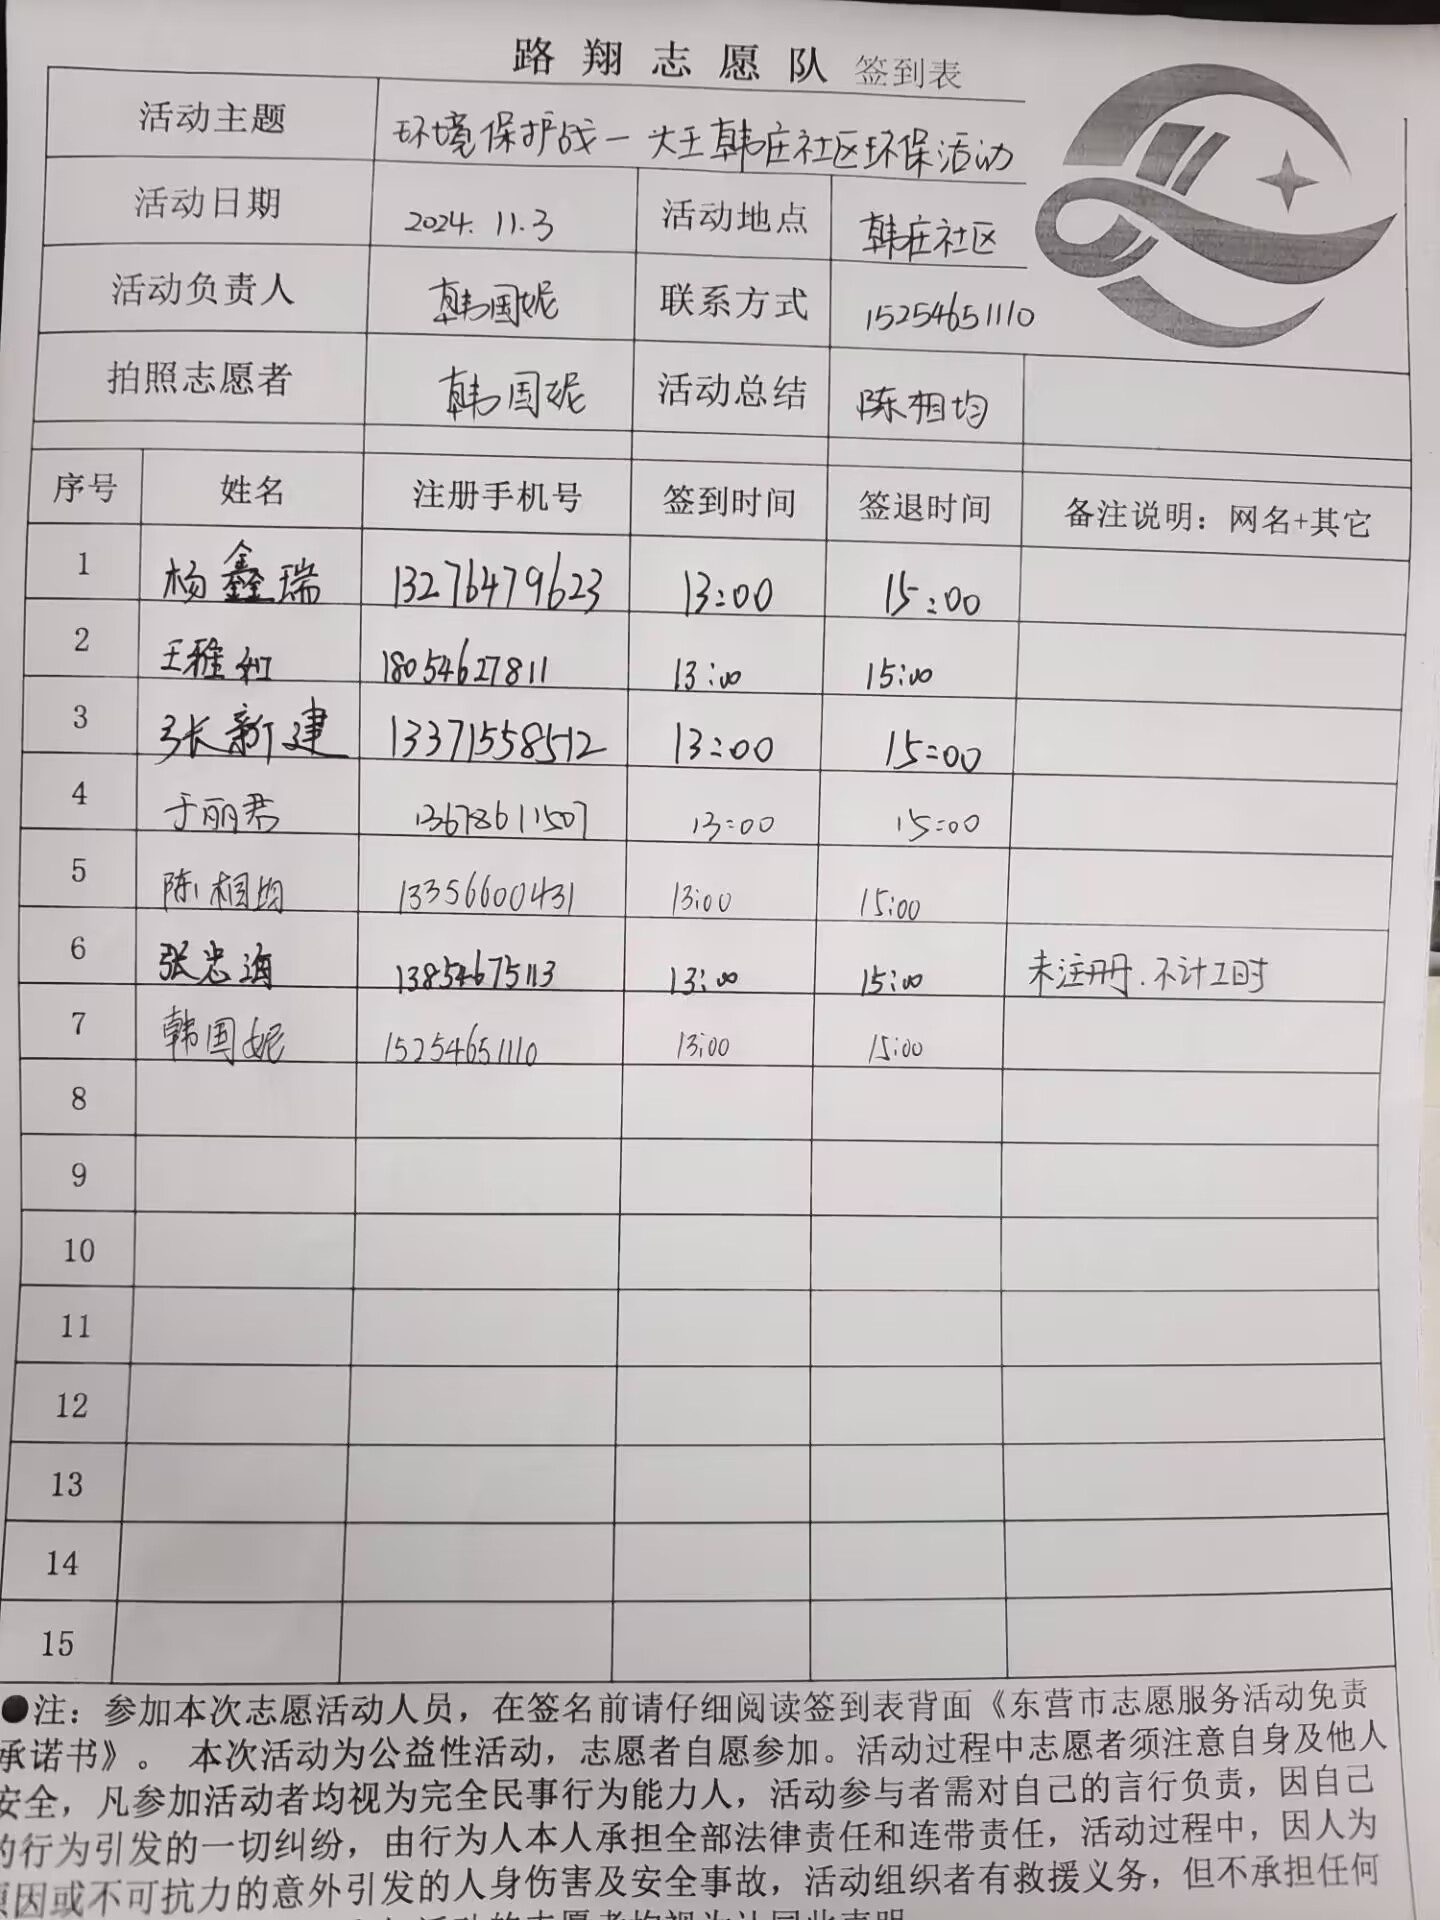 路翔志愿队 签到表
活动主题 环境保护战一大王韩庄社区环保活动
活动日期 2024.11.3 活动地点 韩庄社区
活动负责人 韩国妮 联系方式 15254651110
拍照志愿者 韩国妮 活动总结 陈相均
序号 姓名 注册手机号 签到时间 签退时间 备注说明：网名+其它
1 杨鑫瑞 13276479623 13:00 15:00
2 王雅 18054627811 13:00 15:00
3 张新建 13371558512 13:00 15:00
4 于丽君 13678611507 13:00 15:00
5 陈相均 13356600431 13:00 15:00
6 张忠海 13854675113 13:00 15:00 未注册.不计工时
7 韩国妮 15254651110 13:00 15:00
8
9
10
11
12
13
14
15
●注：参加本次志愿活动人员，在签名前请仔细阅读签到表背面《东营市志愿服务活动免责
承诺书》。 本次活动为公益性活动，志愿者自愿参加。活动过程中志愿者须注意自身及他人
安全，凡参加活动者均视为完全民事行为能力人，活动参与者需对自己的言行负责，因自己
的行为引发的一切纠纷，由行为人本人承担全部法律责任和连带责任，活动过程中，因人为
原因或不可抗力的意外引发的人身伤害及安全事故，活动组织者有救援义务，但不承担任何